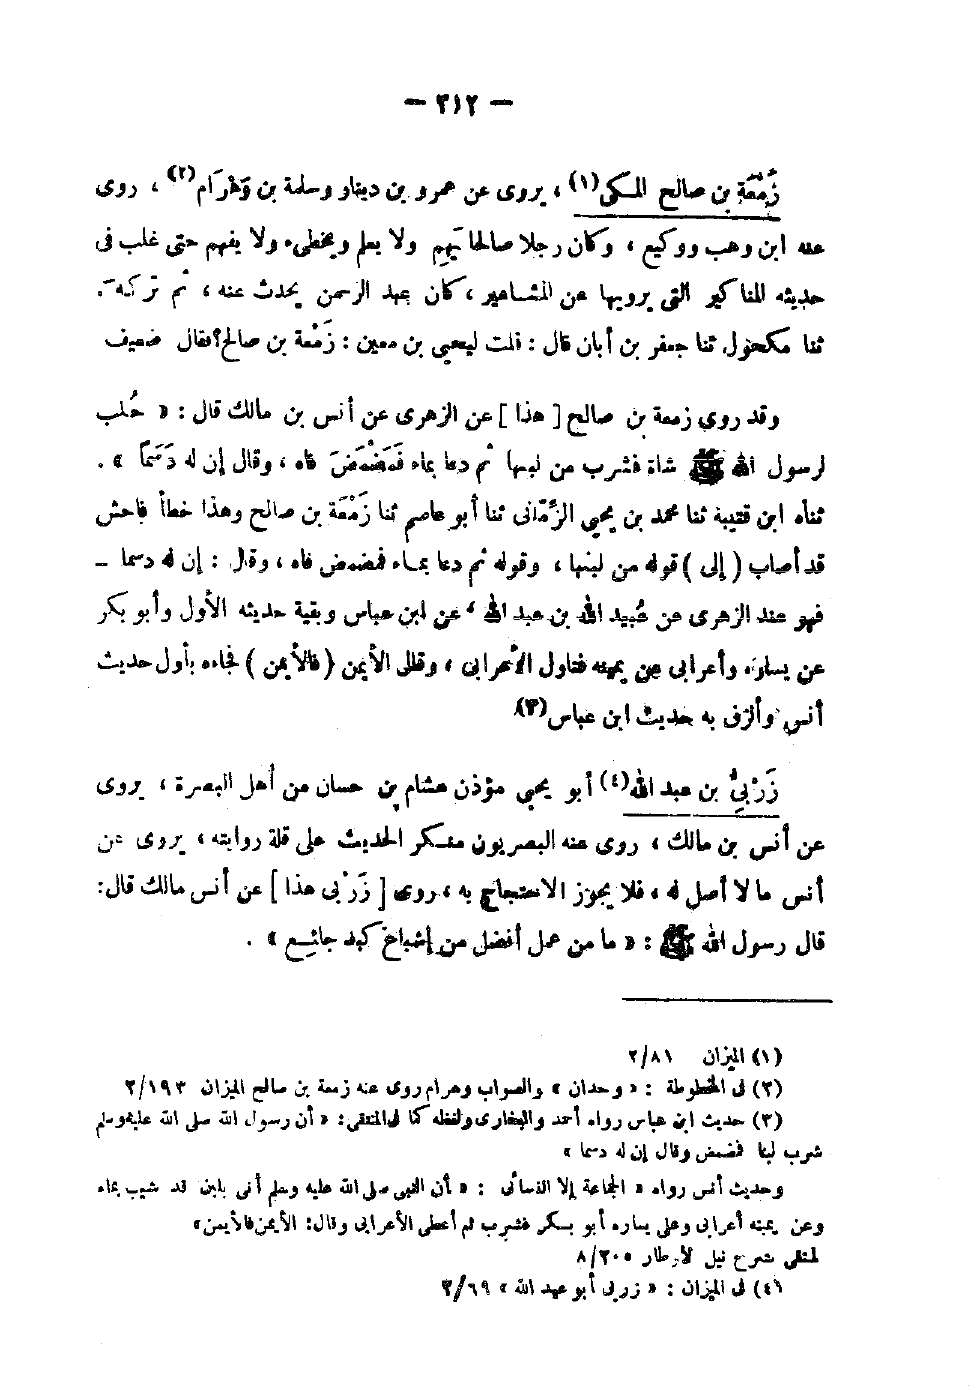 — ٣١٢ —
زَمْعَة بن صالح المكى(١) ، يروى عن عمرو بن دينار وسلمة بن وَهْرَام(٢) ، روى
عنه ابن وهب ووكيع ، وكان رجلا صالحا يَهِم ولا يعلم ويخطىء ولا يفهم حتى غلب فى
حديثه المناكير التى يرويها عن المشاهير ، كان عبد الرحمن يحدث عنه ، ثم تركه .
ثنا مكحول ثنا جعفر بن أبان قال : قلت ليحيى بن معين : زَمْعَة بن صالح؟ فقال ضعيف
وقد روى زمعة بن صالح [ هذا ] عن الزهرى عن أنس بن مالك قال : « حُلب
لرسول الله ﷺ شاة فشرب من لبنها ثم دعا بماء فَمَضْمَضَ فاه ، وقال إن له دَسَمًا » .
ثناه ابن قتيبة ثنا محمد بن يحيى الزِّمَّانى ثنا أبو عاصم ثنا زَمْعَة بن صالح وهذا خطأ فاحش
قد أصاب ( إلى ) قوله من لبنها ، وقوله ثم دعا بماء فمضمض فاه ، وقال : إن له دسما –
فهو عند الزهرى عن عُبيد الله بن عبد الله ، عن ابن عباس وبقية حديثه الأول وأبو بكر
عن يساره وأعرابى عن يمينه فناول الأعرابى ، وقال الأيمن ( فالأيمن ) فجاءه بأول حديث
أنس وألزق به حديث ابن عباس(٣)
زَرْبِىُّ بن عبد الله(٤) أبو يحيى مؤذن هشام بن حسان من أهل البصرة ، يروى
عن أنس بن مالك ، روى عنه البصريون منكر الحديث على قلة روايته ، يروى عن
أنس ما لا أصل له ، فلا يجوز الاحتجاج به ، روى [ زَرْبى هذا ] عن أنس مالك قال :
قال رسول الله ﷺ : « ما من عمل أفضل من إشباع كبد جائع » .
(١) الميزان ٢/٨١
(٢) فى المخطوطة : « وحدان » والصواب وهرام روى عنه زمعة بن صالح الميزان ٢/١٩٣
(٣) حديث ابن عباس رواه أحمد والبخارى ولفظه كما فى المنتقى : « أن رسول الله صلى الله عليه وسلم
شرب لبنا فمضمض وقال إن له دسما »
وحديث أنس رواه « الجماعة إلا النسائى : « أن النبى صلى الله عليه وسلم أتى بلبن قد شيب بماء
وعن يمينه أعرابى وعلى يساره أبو بكر فشرب ثم أعطى الأعرابى وقال : الأيمن فالأيمن »
لمنتقى شرح نيل الأوطار ٨/٢٠٥
(٤) فى الميزان : « زربى أبو عبد الله » ٣/٦٩